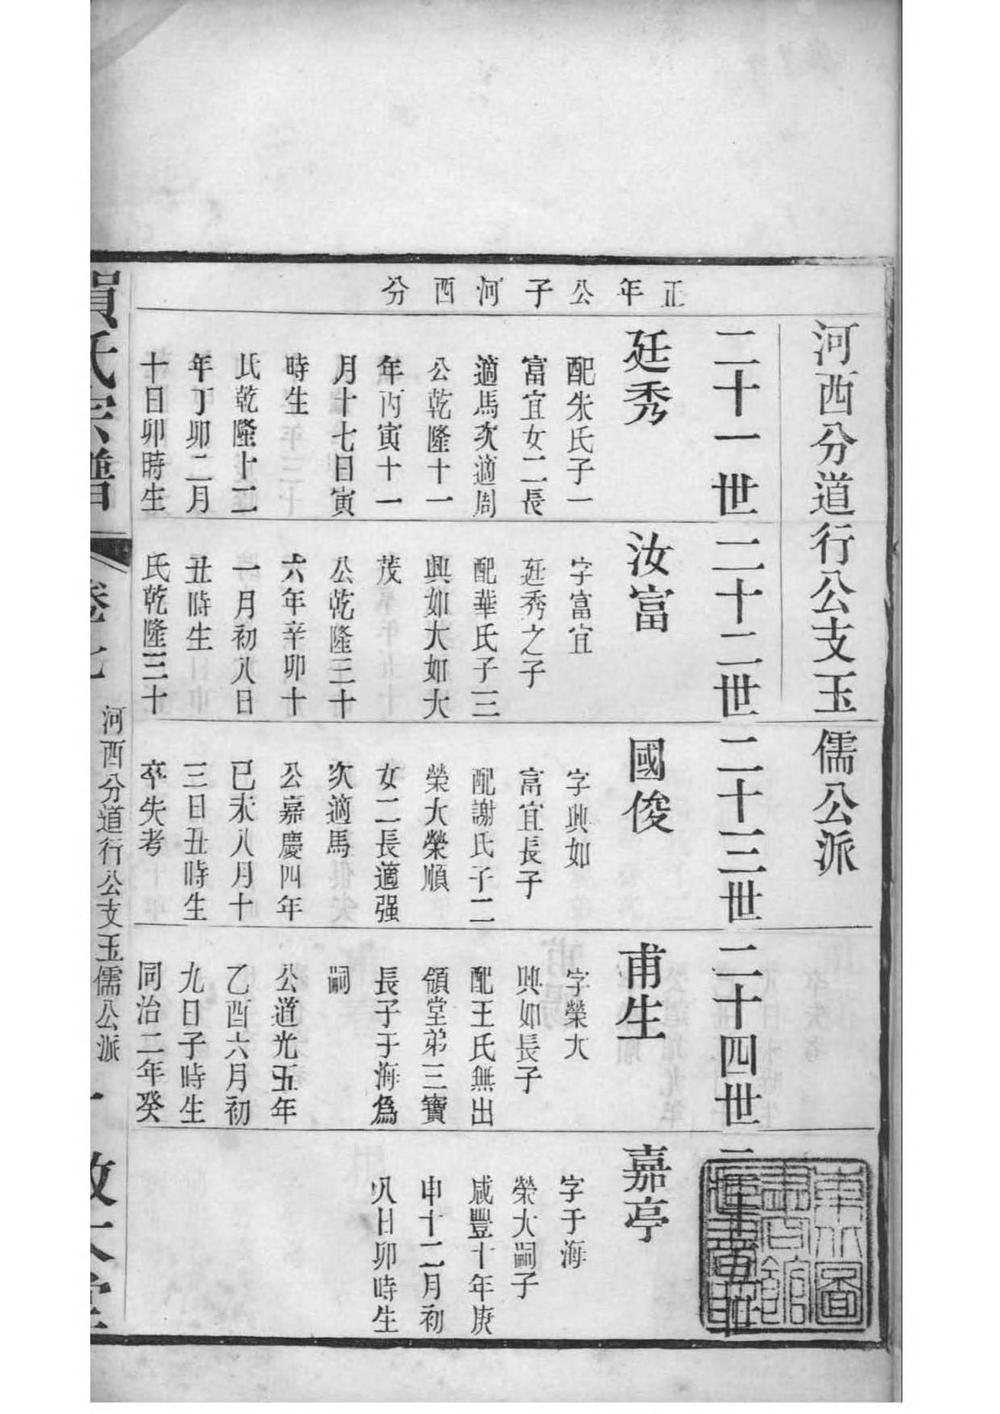 正年公子河西分
河西分道行公支玉儒公派
二十一世
廷秀
配朱氏子一
富宜女二長
適馬次適周
公乾隆十一
年丙寅十一
月十七日寅
時生
氏乾隆十二
年丁卯二月
十日卯時生
二十二世
汝富
字富宜
廷秀之子
配華氏子三
興如大如大
茂
公乾隆三十
六年辛卯十
一月初八日
丑時生
氏乾隆三十
二十三世
國俊
字興如
富宜長子
配謝氏子二
榮大榮順
女二長適强
次適馬
公嘉慶四年
已未八月十
三日丑時生
卒失考
二十四世
甫生
字榮大
興如長子
配王氏無出
領堂弟三寶
長子于海爲
嗣
公道光五年
乙酉六月初
九日子時生
同治二年癸
嘉亭
字于海
榮大嗣子
咸豐十年庚
申十二月初
八日卯時生
氏宗譜
卷七
河西分道行公支玉儒公派
一